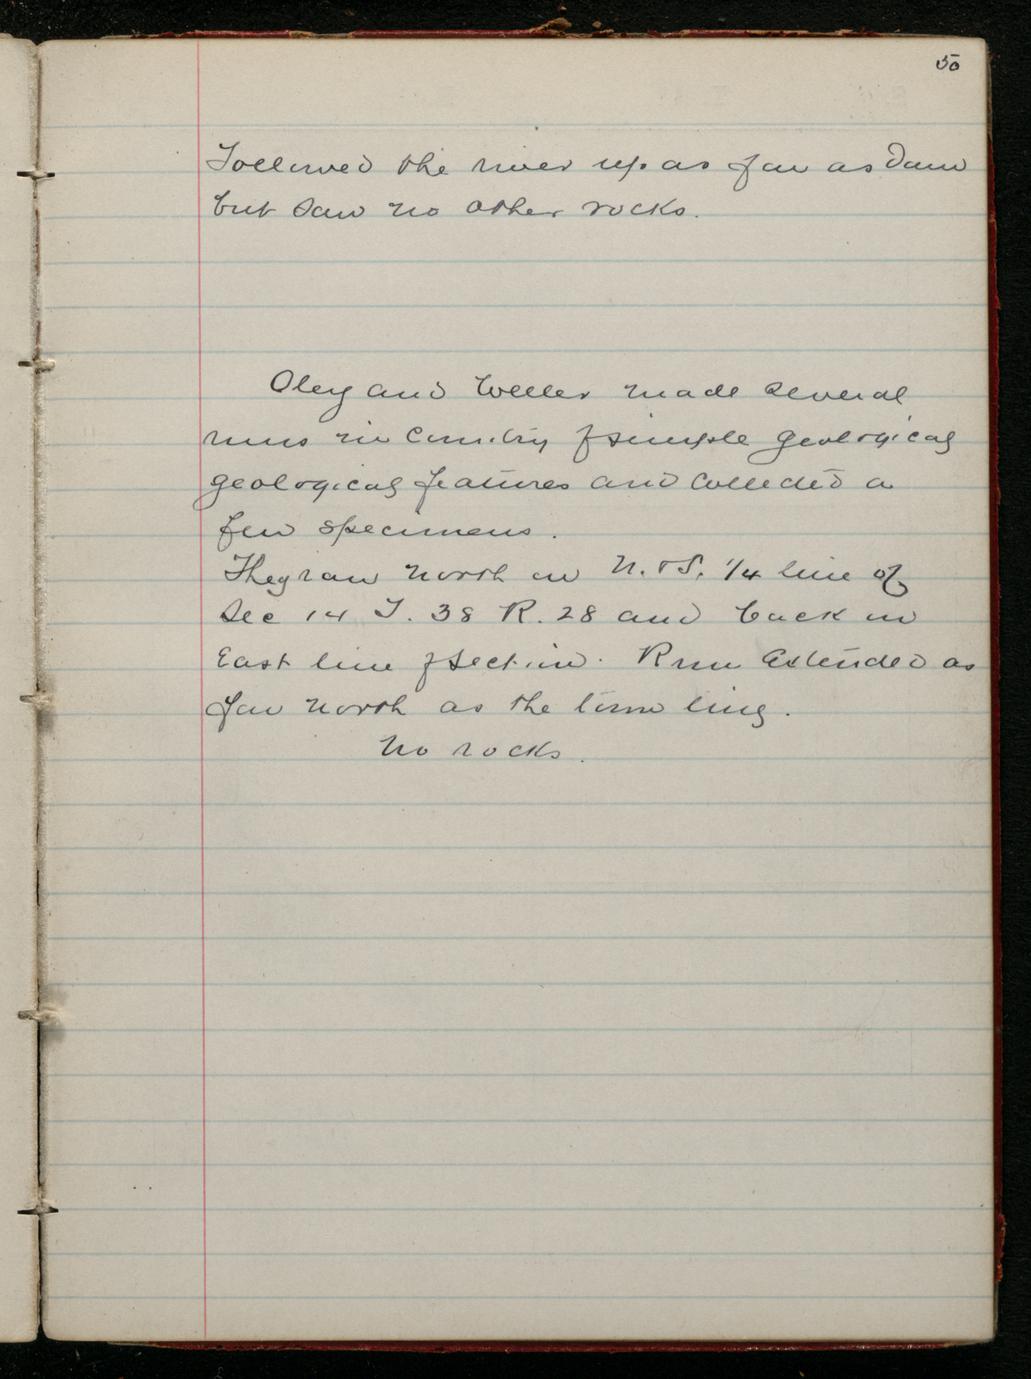 50
Followed the river up as far as dam
but saw no other rocks.
Oley and Weller made several
runs in country of simple geological
geological features and collected a
few specimens.
They ran north on N. & S. 1/4 line of
Sec 14 T. 38 R. 28 and back on
East line of section. Run extended as
far north as the town line.
No rocks.